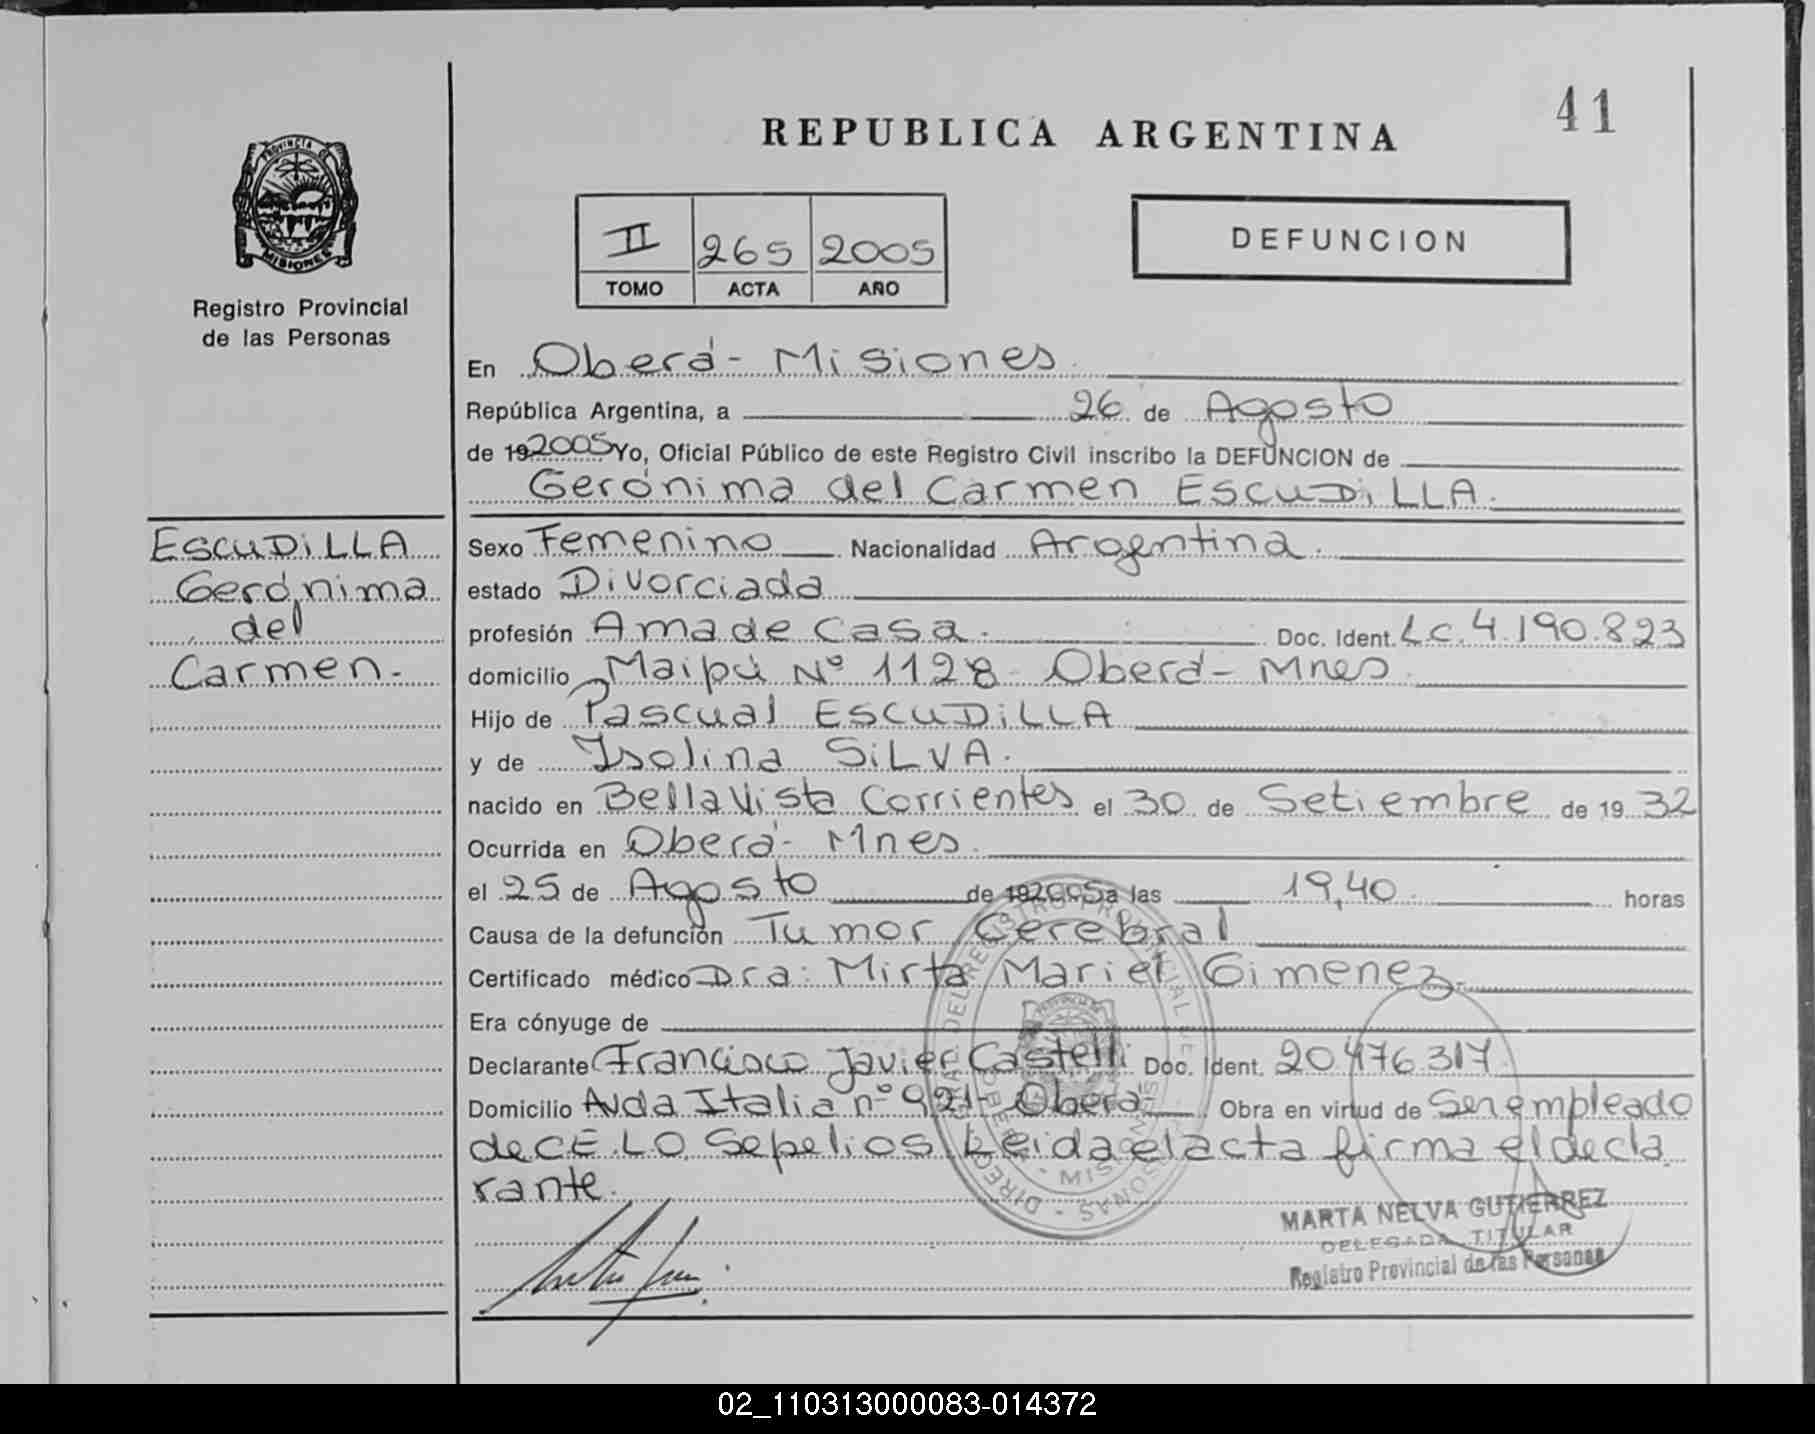 41
REPUBLICA ARGENTINA
PROVINCIA DE
MISIONES
Registro Provincial
de las Personas
II 265 2005
TOMO ACTA AÑO
DEFUNCION
En Oberá - Misiones
República Argentina, a 26 de Agosto
de 19 2005 Yo, Oficial Público de este Registro Civil inscribo la DEFUNCION de
Gerónima del Carmen ESCUDiLLA.
ESCUDiLLA
Gerónima
del
Carmen.-
Sexo Femenino Nacionalidad Argentina.
estado Divorciada
profesión Ama de casa. Doc. Ident. L.C. 4.190.823
domicilio Maipú Nº 1128 Oberá - Mnes
Hijo de Pascual ESCUDiLLA
y de Isolina SiLVA.
nacido en Bella Vista Corrientes el 30 de Setiembre de 19 32
Ocurrida en Oberá - Mnes.
el 25 de Agosto de 19 2005 a las 19,40 horas
Causa de la defunción Tumor Cerebral
Certificado médico Dra: Mirta Mariel Gimenez.
Era cónyuge de
Declarante Francisco Javier Castelli Doc. Ident. 20.476.317
Domicilio Avda Italia nº 921 - Oberá - Obra en virtud de Ser empleado
de C.E.L.O. Sepelios. Leida el acta firma el decla
rante.
MARTA NELVA GUTIERREZ
DELEGADA TITULAR
Registro Provincial de las Personas
02_110313000083-014372